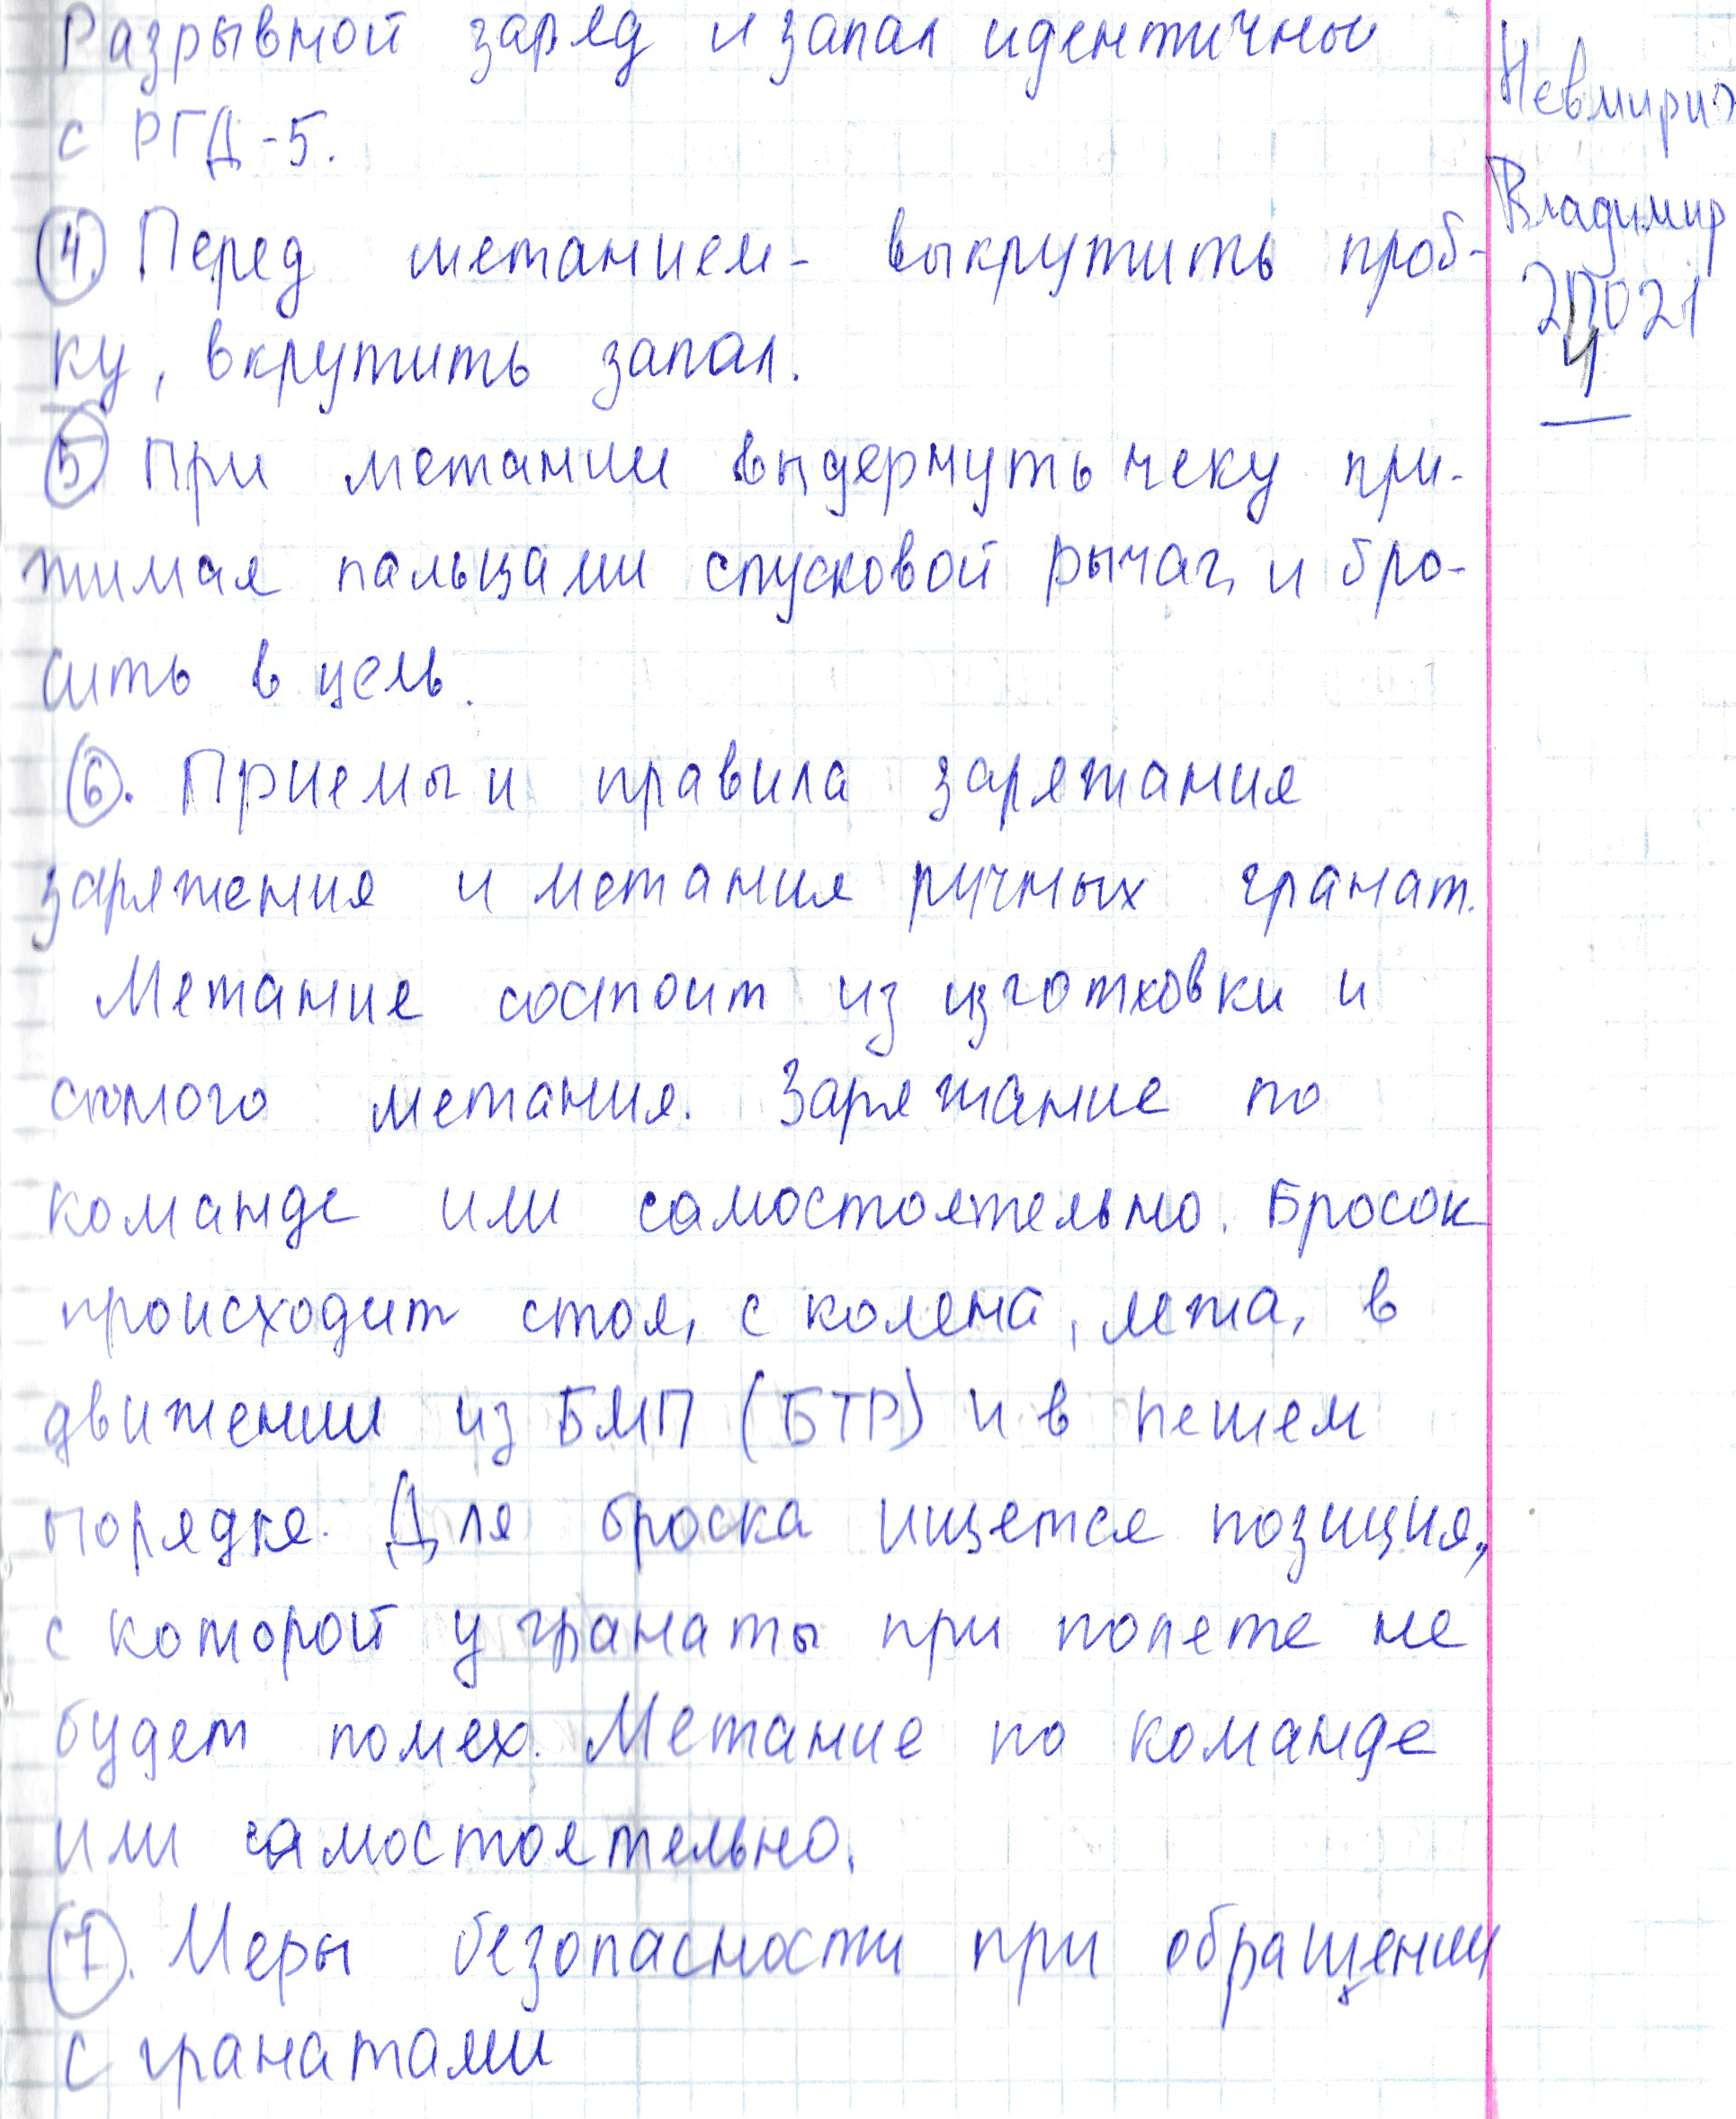 Разрывной заряд и запал идентичны
с РГД-5.
4. Перед метанием - выкрутить проб-
ку, вкрутить запал.
5 При метании выдернуть чеку при-
жимая пальцами спусковой рычаг, и бро-
сить в цель.
6. Приемы и правила заряжания
заряжения и метания ручных гранат.
Метание состоит из изготковки и
самого метания. Заряжание по
команде или самостоятельно. Бросок
происходит стоя, с колена, лежа, в
движении из БМП (БТР) и в пешем
порядке. Для броска ищется позиция,
с которой у гранаты при полете не
будет помех. Метание по команде
или самостоятельно.
7. Меры безопасности при обращении
с гранатами
Невмириз
Владимир
2П021
4